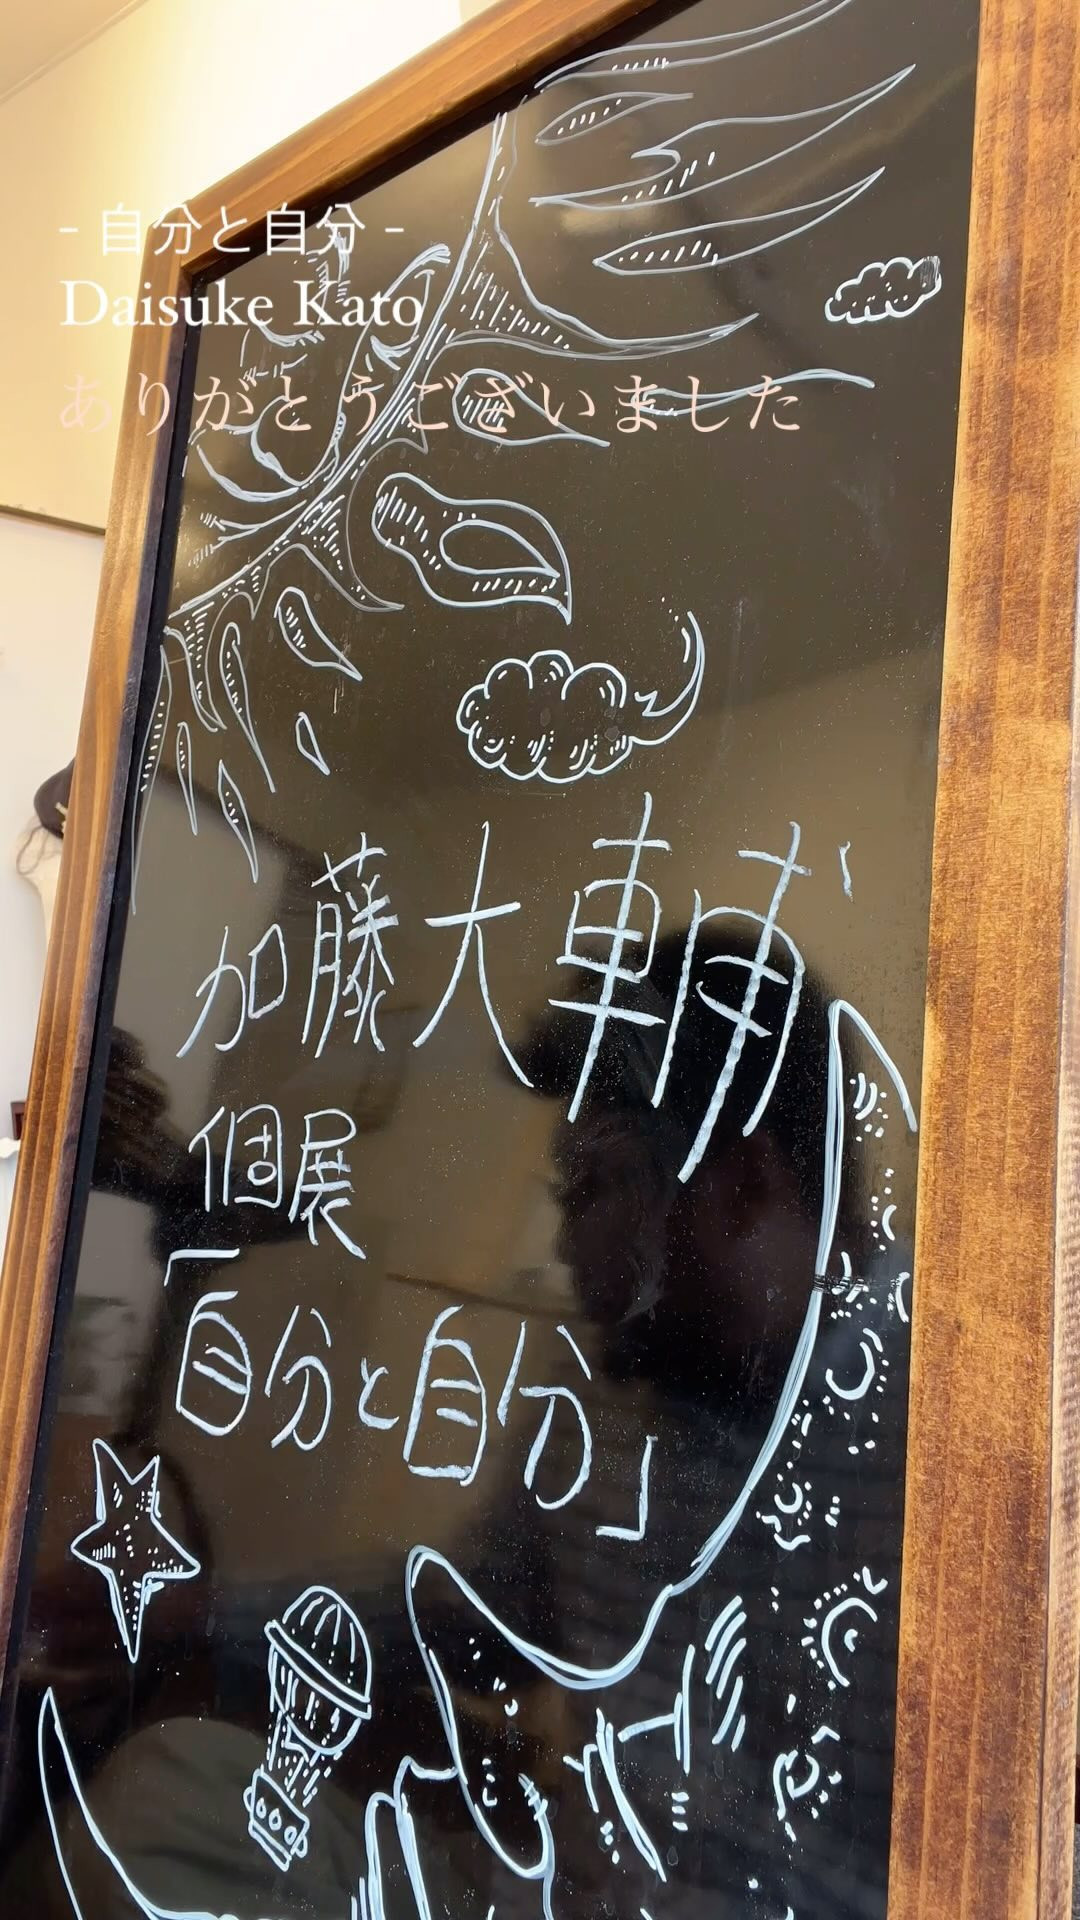 - 自分と自分 -
Daisuke Kato
ありがとうございました
加藤大輔
個展
「自分と自分」